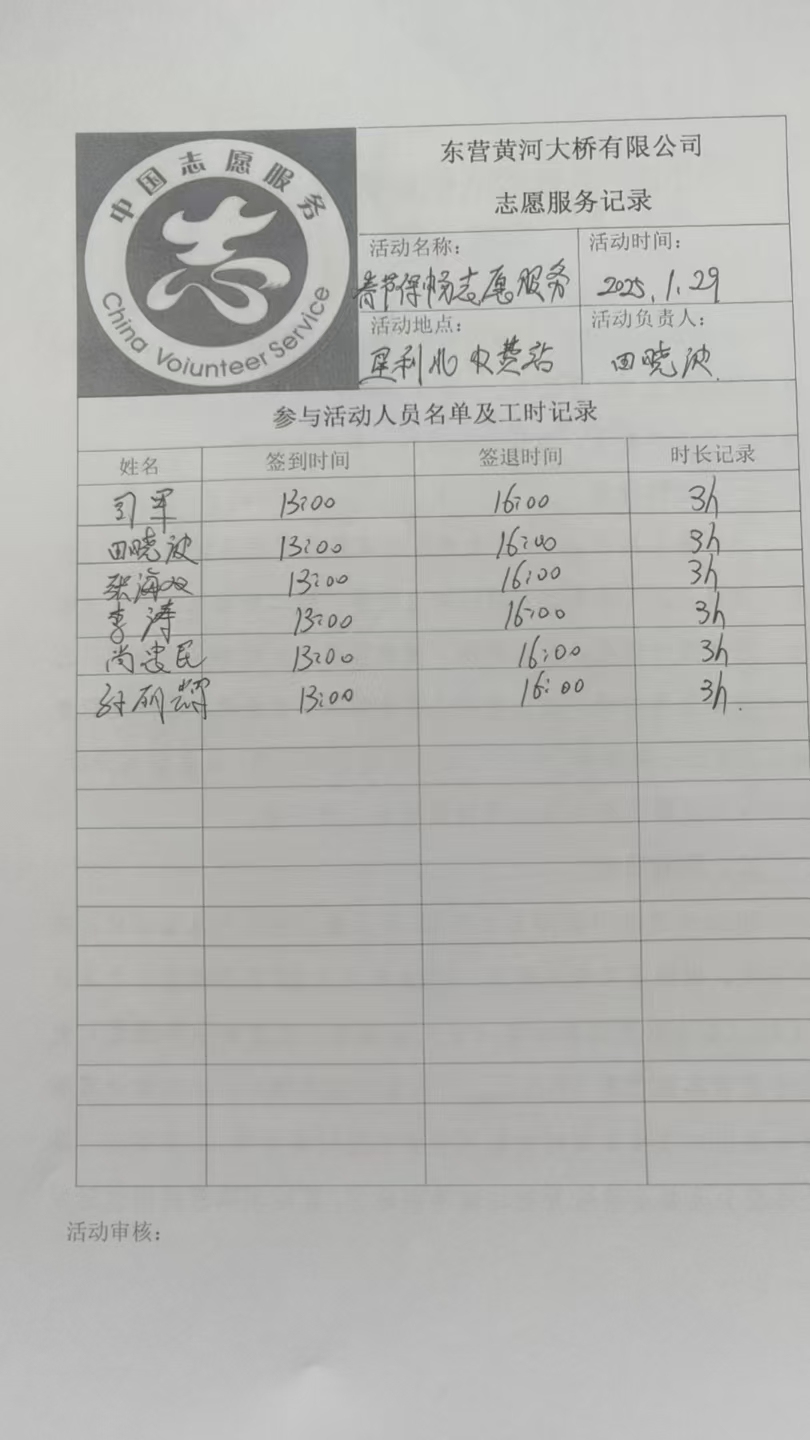 中国志愿服务
志
China Voiunteer Service
东营黄河大桥有限公司
志愿服务记录
活动名称：
春节保畅志愿服务
活动时间：
2025.1.29
活动地点：
垦利北收费站
活动负责人：
田晓波
参与活动人员名单及工时记录
姓名 签到时间 签退时间 时长记录
司军 13:00 16:00 3h
田晓波 13:00 16:00 3h
张海 13:00 16:00 3h
李涛 13:00 16:00 3h
尚忠民 13:00 16:00 3h
13:00 16:00 3h.
活动审核：